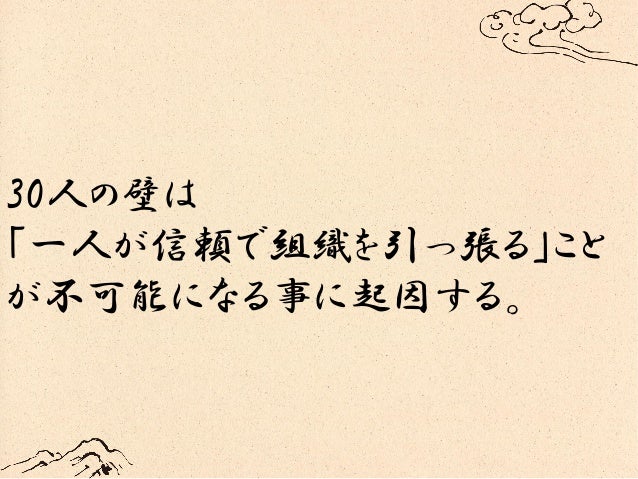 30人の壁は
「一人が信頼で組織を引っ張る」こと
が不可能になる事に起因する。